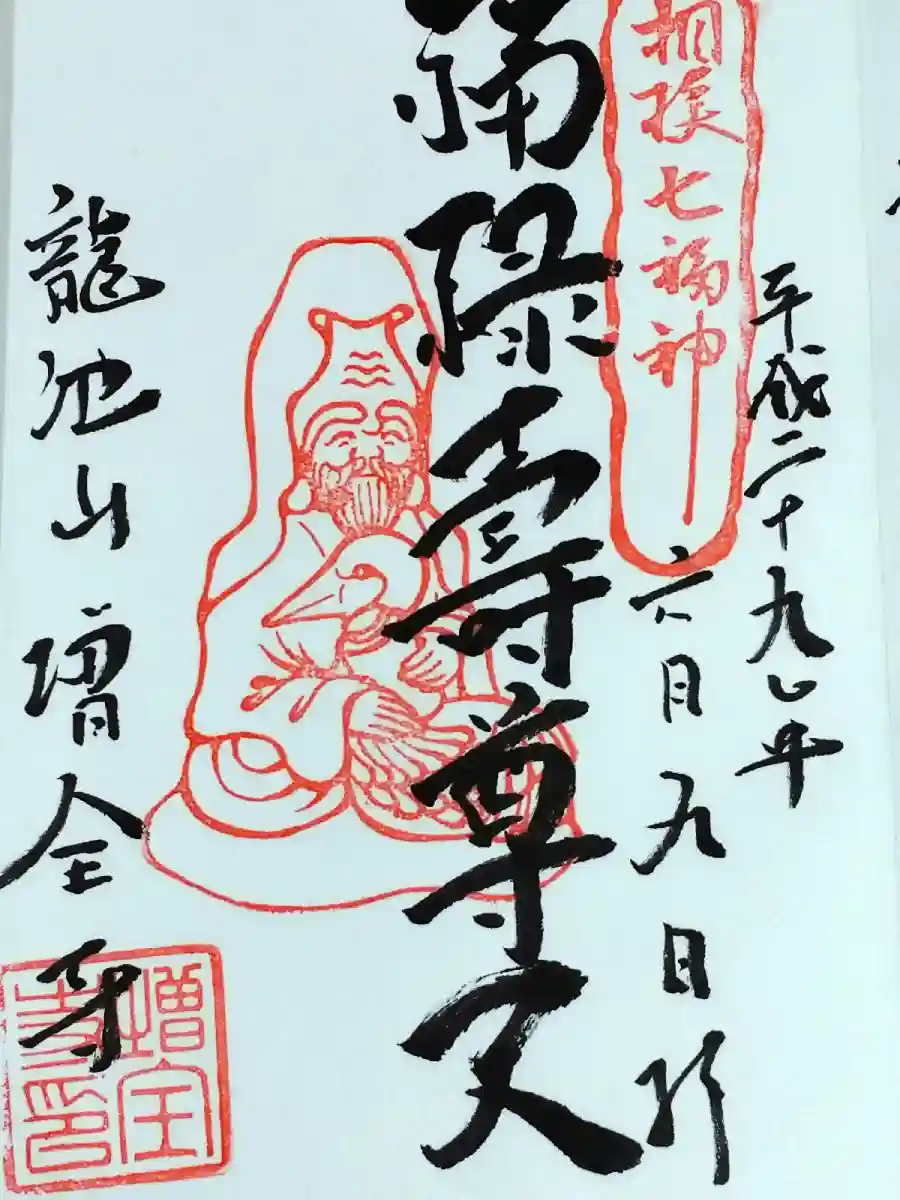 相模七福神
平成二十九年
六月九日
福禄寿尊天
龍池山 増全寺
増全寺印